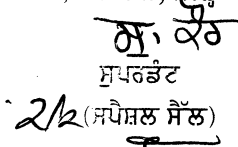 ਸੁ. ਕੌਰ
ਸੁਪਰਡੰਟ
2/2 (ਸਪੈਸ਼ਲ ਸੈੱਲ)